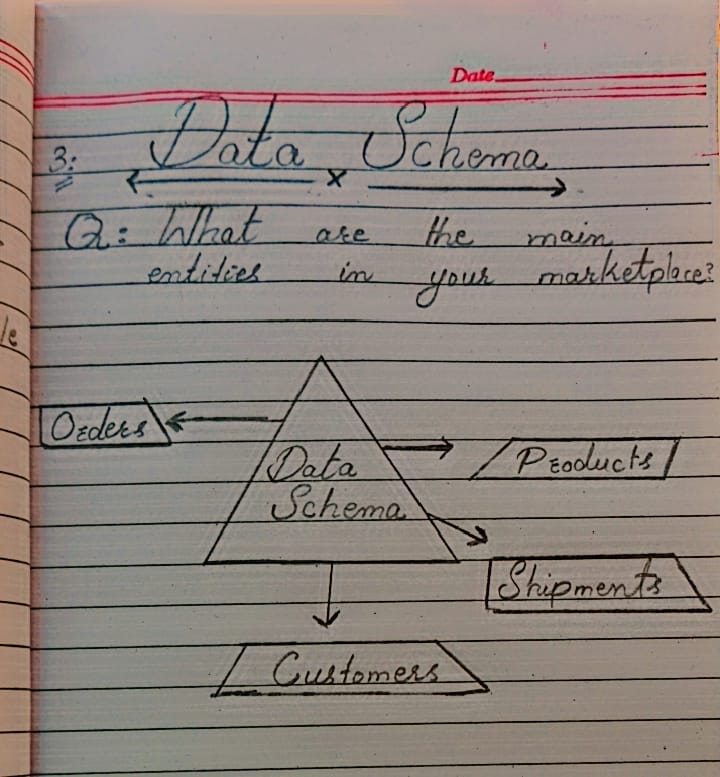 Date
3: Data x Schema
Q: What are the main
entities in your marketplace?
Orders
Data
Schema
Products
Shipments
Customers